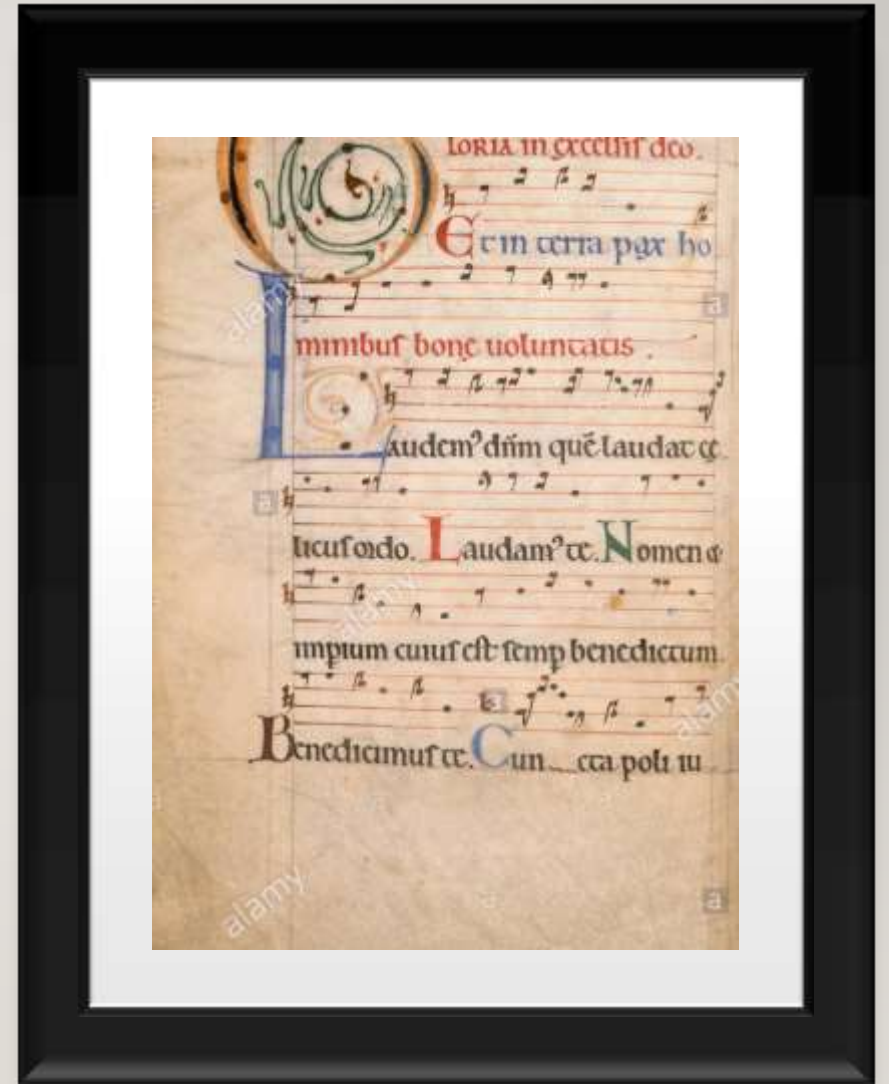 loria in excelsis deo.
Et in terra pax ho
minibus bonę uoluntatis
Laudem⁹ dñm quē laudat cę
licus ordo. Laudam⁹ te. Nomen &
impium cuius est semp benedictum.
Benedicimus te. Cun cta poli iu
alamy